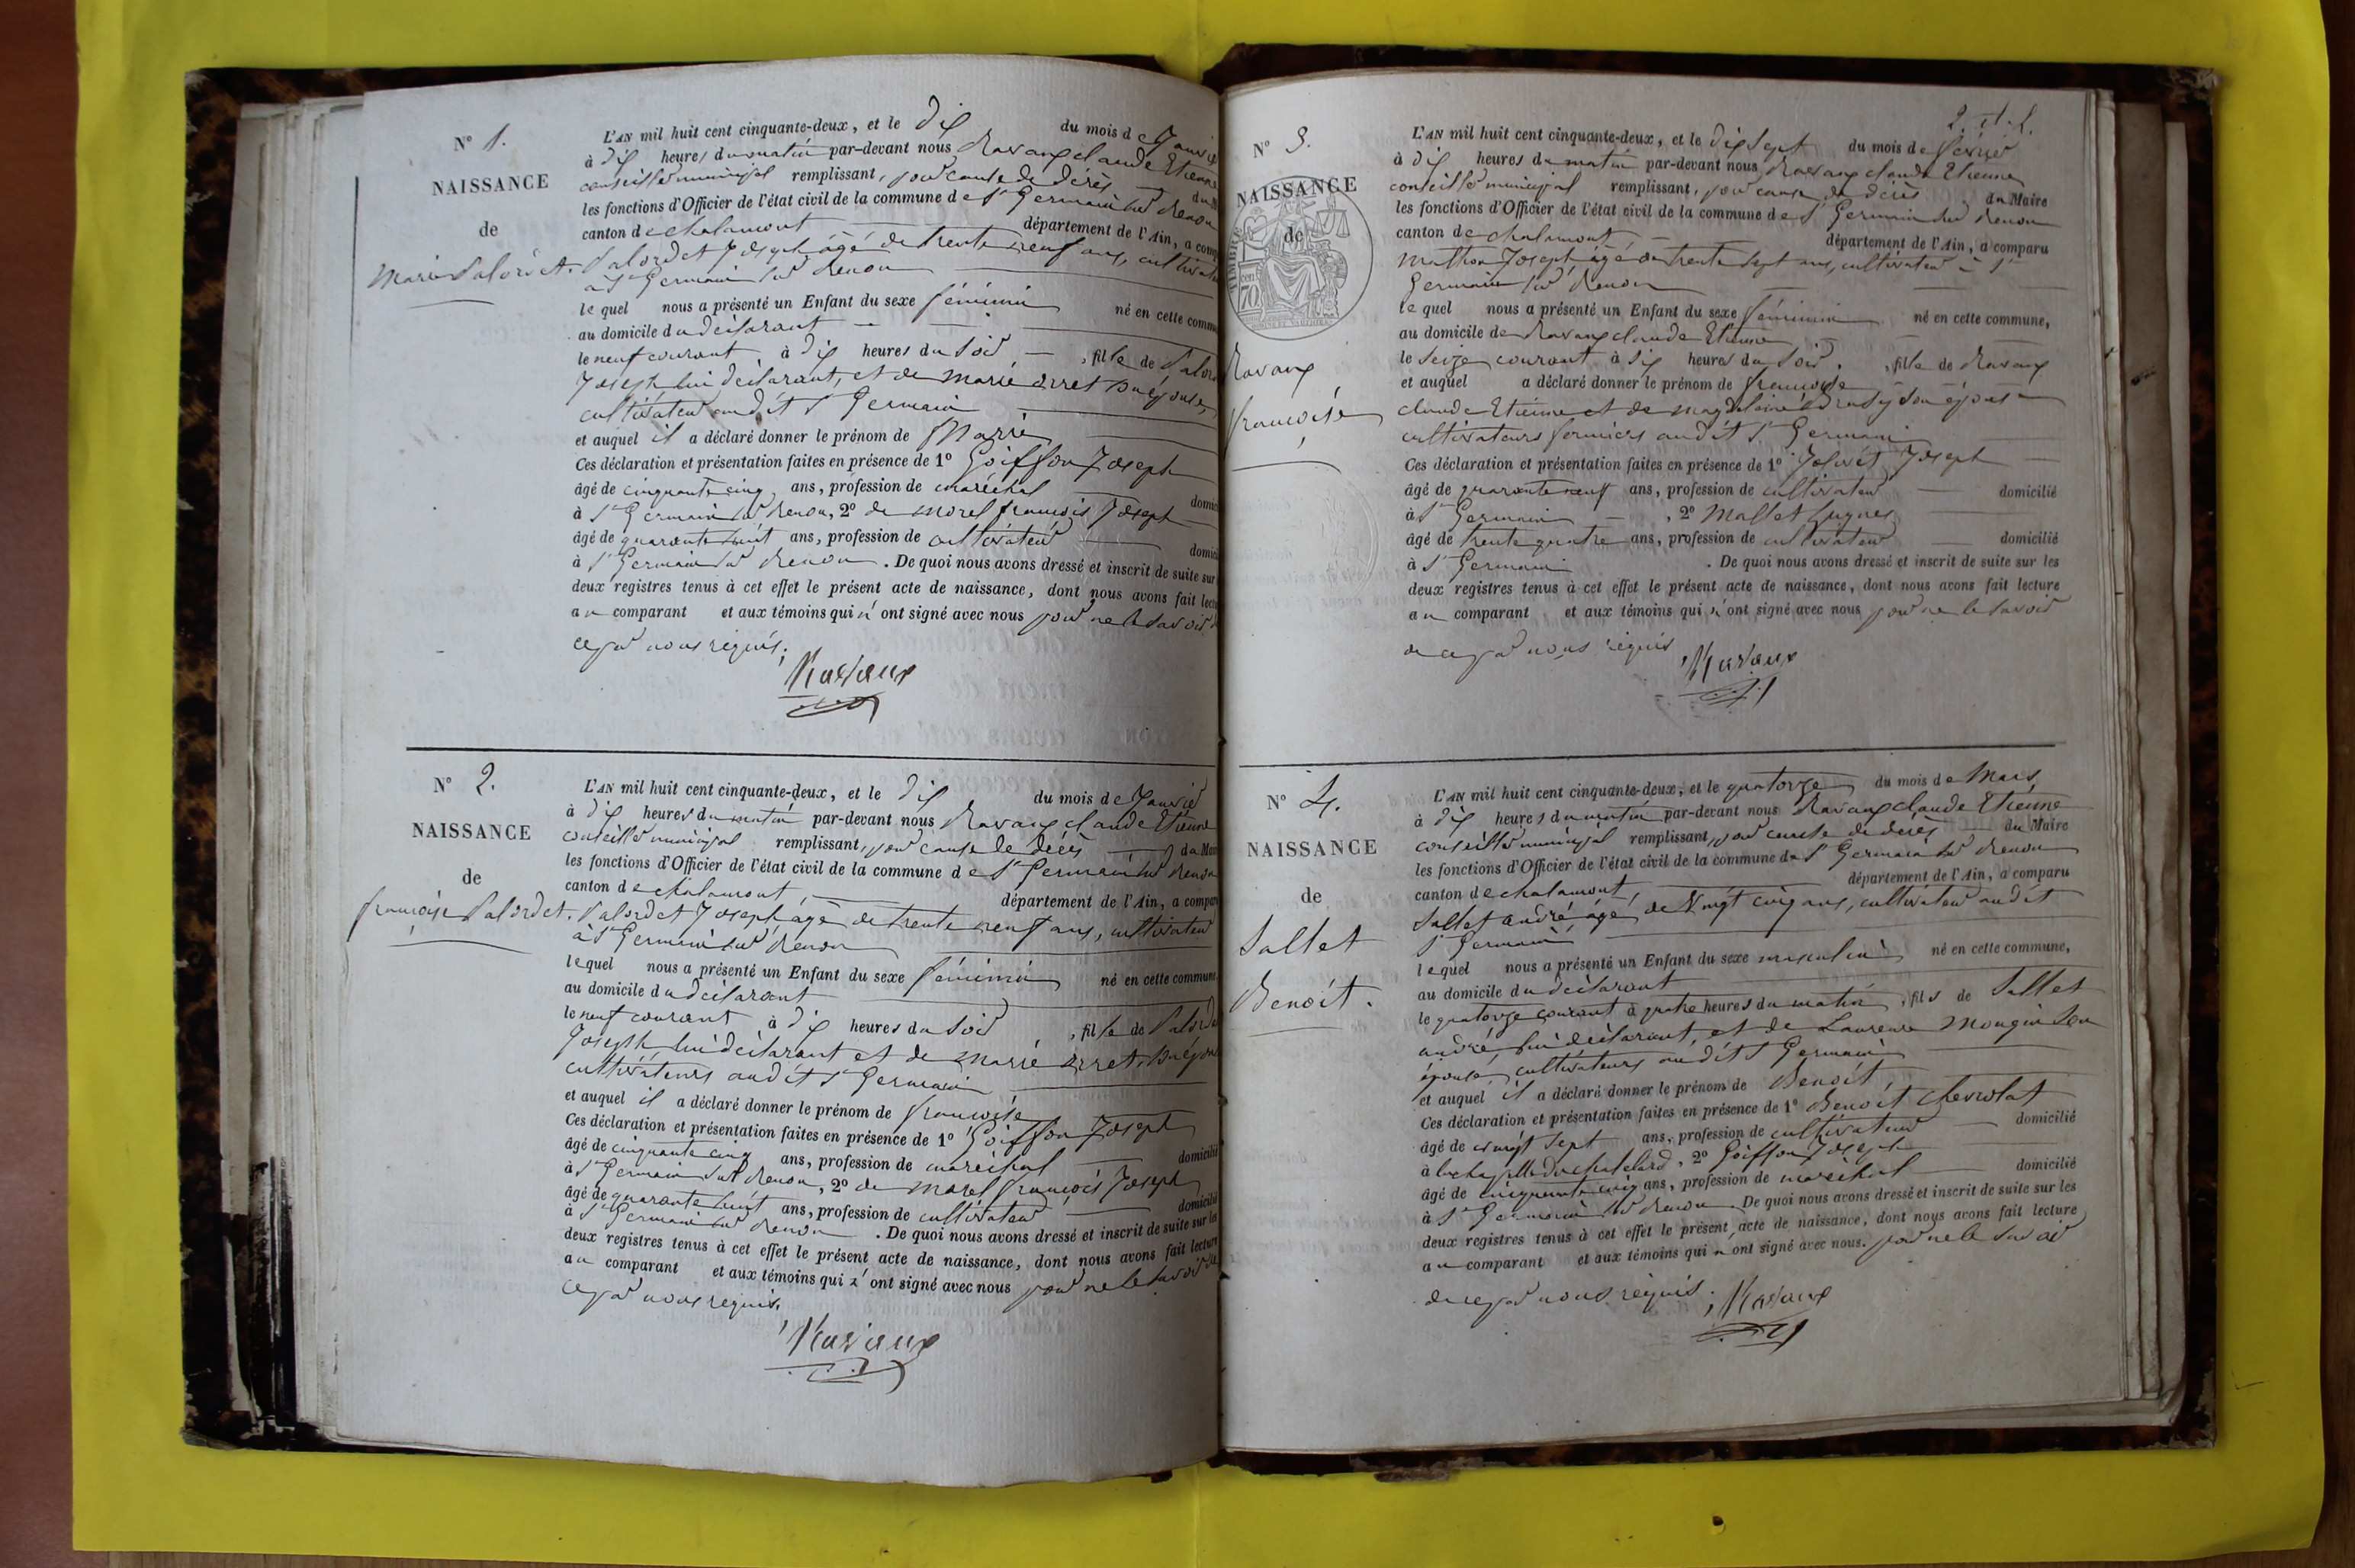 N° 1.
NAISSANCE
de
Marie Salordet.
L'AN mil huit cent cinquante-deux, et le dix du mois de Janvier
à dix heures du matin par-devant nous Ravaux claude Etienne
conseiller municipal remplissant, pour cause de décès du M
les fonctions d'Officier de l'état civil de la commune de St Germain sur Renon
canton de chalamont département de l'Ain, a comp
Salordet Joseph âgé de trente neuf ans, cultivateur
à St Germain sur Renon
le quel nous a présenté un Enfant du sexe féminin né en cette commu
au domicile du déclarant
le neuf courant à dix heures du soir, fille de Salor
Joseph lui déclarant, et de marie arret son épouse,
cultivateur audit St Germain
et auquel il a déclaré donner le prénom de Marie
Ces déclaration et présentation faites en présence de 1° Goiffon Joseph
âgé de cinquante cinq ans, profession de maréchal domici
à St Germain sur Renon, 2° de morel françois Joseph
âgé de quarante huit ans, profession de cultivateur domici
à St Germain sur Renon. De quoi nous avons dressé et inscrit de suite sur
deux registres tenus à cet effet le présent acte de naissance, dont nous avons fait lect
au comparant et aux témoins qui n'ont signé avec nous pour ne le savoir de
ce par nous requis.
Ravaux
N° 2.
NAISSANCE
de
françoise Salordet.
L'AN mil huit cent cinquante-deux, et le dix du mois de Janvier
à dix heures du matin par-devant nous Ravaux claude Etienne
conseiller municipal remplissant, pour cause de décès du Mai
les fonctions d'Officier de l'état civil de la commune de St Germain sur Renon
canton de chalamont, département de l'Ain, a compar
Salordet Joseph âgé de trente neuf ans, cultivateur
à St Germain sur Renon
lequel nous a présenté un Enfant du sexe féminin né en cette commune
au domicile du déclarant
le neuf courant à dix heures du soir, fille de Salorde
Joseph lui déclarant et de marie arret, son épouse
cultivateurs audit St Germain
et auquel il a déclaré donner le prénom de françoise
Ces déclaration et présentation faites en présence de 1° Goiffon Joseph
âgé de cinquante cinq ans, profession de maréchal domicilié
à St Germain sur Renon, 2° de morel françois Joseph
âgé de quarante huit ans, profession de cultivateur domicilié
à St Germain sur Renon. De quoi nous avons dressé et inscrit de suite sur les
deux registres tenus à cet effet le présent acte de naissance, dont nous avons fait lecture
au comparant et aux témoins qui n'ont signé avec nous pour ne le savoir de
ce par nous requis.
Ravaux
N° 3.
NAISSANCE
de
Ravaux
françoise
L'AN mil huit cent cinquante-deux, et le dix sept du mois de février
à dix heures du matin par-devant nous Ravaux claude Etienne
conseiller municipal remplissant, pour cause de décès du Maire
les fonctions d'Officier de l'état civil de la commune de St Germain sur Renon
canton de chalamont département de l'Ain, a comparu
mathon Joseph, âgé de trente sept ans, cultivateur à St
Germain sur Renon
le quel nous a présenté un Enfant du sexe féminin né en cette commune,
au domicile de Ravaux claude Etienne
le seize courant à six heures du soir, fille de Ravaux
et auquel a déclaré donner le prénom de françoise
claude Etienne et de magdelaine son épouse
cultivateurs fermiers audit St Germain
Ces déclaration et présentation faites en présence de 1° Jolivet Joseph
âgé de quarante neuf ans, profession de cultivateur domicilié
à St Germain, 2° Mallet hugues
âgé de trente quatre ans, profession de cultivateur domicilié
à St Germain. De quoi nous avons dressé et inscrit de suite sur les
deux registres tenus à cet effet le présent acte de naissance, dont nous avons fait lecture
au comparant et aux témoins qui n'ont signé avec nous pour ne le savoir
de ce par nous requis
Ravaux
N° 4.
NAISSANCE
de
Sallet
Benoît.
L'AN mil huit cent cinquante-deux, et le quatorze du mois de Mars
à dix heures du matin par-devant nous Ravaux claude Etienne
conseiller municipal remplissant, pour cause de décès du Maire
les fonctions d'Officier de l'état civil de la commune de St Germain sur Renon
canton de chalamont, département de l'Ain, a comparu
Sallet andré âgé de vingt cinq ans, cultivateur audit
St Germain
lequel nous a présenté un Enfant du sexe masculin né en cette commune,
au domicile du déclarant
le quatorze courant à quatre heures du matin, fils de Sallet
andré, lui déclarant, et de Laurence Mongin son
épouse, cultivateurs audit St Germain
et auquel il a déclaré donner le prénom de Benoît
Ces déclaration et présentation faites en présence de 1° Benoit Chevrolat
âgé de vingt sept ans, profession de cultivateur domicilié
à lachapelle du chatelard, 2° Goiffon Joseph
âgé de cinquante cinq ans, profession de maréchal domicilié
à St Germain sur Renon. De quoi nous avons dressé et inscrit de suite sur les
deux registres tenus à cet effet le présent acte de naissance, dont nous avons fait lecture
au comparant et aux témoins qui n'ont signé avec nous. pour ne le savoir
de ce par nous requis.
Ravaux